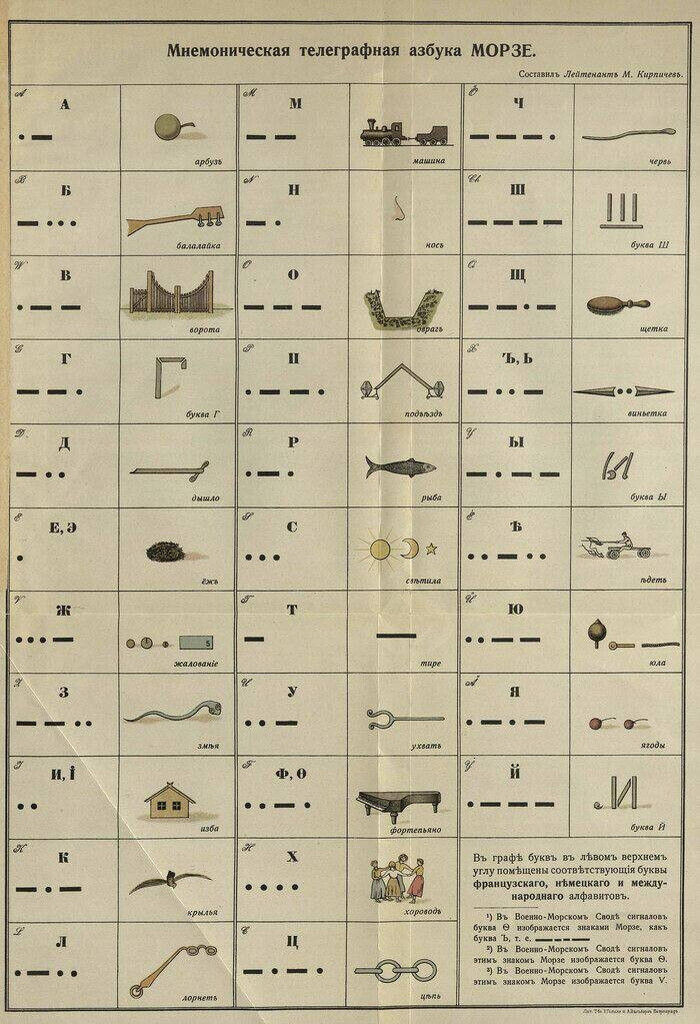 Мнемоническая телеграфная азбука МОРЗЕ.
Составилъ Лейтенантъ М. Кирпичевъ.
A
А
арбузъ
B
Б
балалайка
W
В
ворота
G
Г
буква Г
D
Д
дышло
E
Е, Э
ёжъ
V
Ж
жалованіе
5
Z
З
змѣя
I
И, І
изба
K
К
крылья
L
Л
лорнетъ
M
М
машина
N
Н
носъ
O
О
оврагъ
P
П
подъѣздъ
R
Р
рыба
S
С
свѣтила
T
Т
тире
U
У
ухватъ
F
Ф, Ѳ
фортепьяно
H
Х
хороводъ
C
Ц
цѣпь
Ö
Ч
червь
Ch
Ш
буква Ш
Q
Щ
щетка
X
Ъ, Ь
виньетка
Y
Ы
буква Ы
É
Ѣ
ѣдетъ
Ü
Ю
юла
Ä
Я
ягоды
Й
буква Й
Въ графѣ буквъ въ лѣвомъ верхнемъ
углу помѣщены соотвѣтствующія буквы
французскаго, нѣмецкаго и между-
народнаго алфавитовъ.
¹) Въ Военно-Морскомъ Сводѣ сигналовъ
буква Ѳ изображается знаками Морзе, какъ
буква Ъ, т. е.
²) Въ Военно-Морскомъ Сводѣ сигналовъ
этимъ знакомъ Морзе изображается буква Ѳ.
³) Въ Военно-Морскомъ Сводѣ сигналовъ
этимъ знакомъ Морзе изображается буква V.